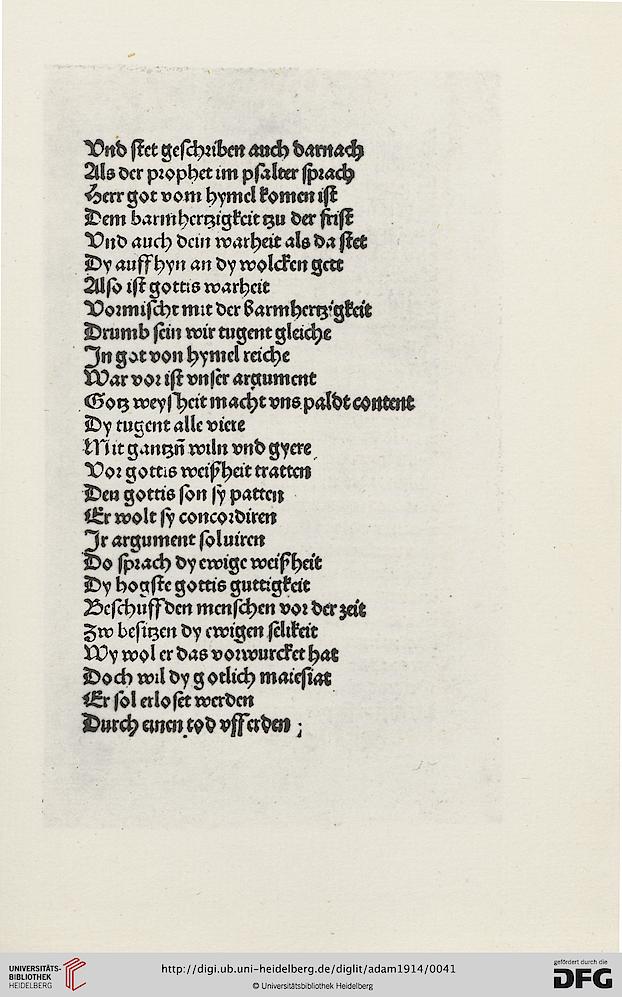 Vnd stet geschriben auch darnach
Als der prophet im psalter sprach
Herr got vom hymel komen ist
Dem barmhertzigkeit tzu der frist
Vnd auch dein warheit als da stet
Dy auff hyn an dy wolcken gett
Also ist gottis warheit
Vormischt mit der Barmhertzigkeit
Drumb sein wir tugent gleiche
In got von hymel reiche
War vor ist vnser argument
Gotz weysheit macht vns paldt content
Dy tugent alle viere
Mit gantzn̄ wiln vnd gyere
Vor gottis weißheit tratten
Den gottis son sy patten
Er wolt sy concordiren
Ir argument soluiren
Do sprach dy ewige weißheit
Dy hogste gottis guttigkeit
Beschuff den menschen vor der zeit
Zw besitzen dy ewigen selikeit
Wy wol er das vorwurcket hat
Doch wil dy gotlich maiestat
Er sol erloset werden
Durch einen tod vff erden ;
UNIVERSITÄTS-
BIBLIOTHEK
HEIDELBERG
http://digi.ub.uni-heidelberg.de/diglit/adam1914/0041
© Universitätsbibliothek Heidelberg
gefördert durch die
DFG